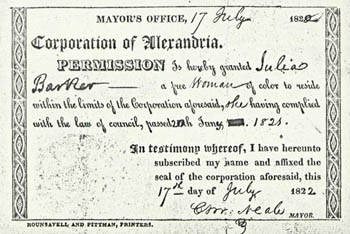 MAYOR'S OFFICE, 17 July 182
Corporation of Alexandria.
PERMISSION Is hereby granted Julia
Barker — a free Woman of color to reside
within the limits of the Corporation aforesaid, she having complied
with the law of council, passed 20th June, 1821.
In testimony whereof, I have hereunto
subscribed my name and affixed the
seal of the corporation aforesaid, this
17th day of July 1822
Neale MAYOR.
ROUNSAVELL AND PITTMAN, PRINTERS.